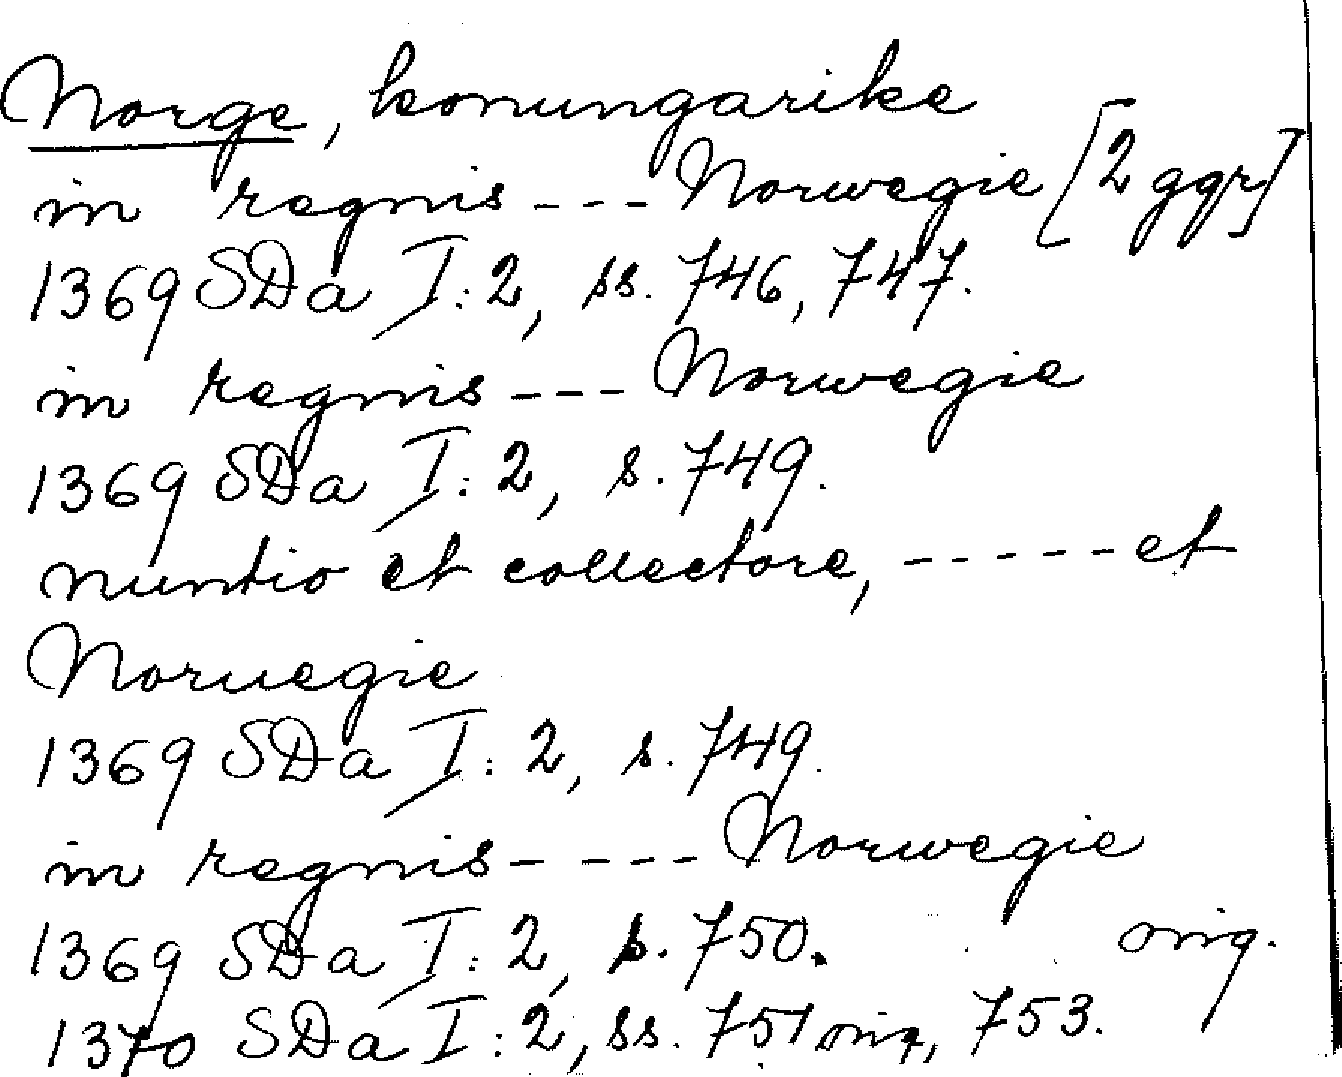 Norge, konungarike
in regnis --- Norwegie [2 ggr]
1369 SDa I:2, ss. 746, 747.
in regnis --- Norwegie
1369 SDa I:2, s. 749.
nuntio et collectore, ----- et
Noruegie
1369 SDa I:2, s. 749.
in regnis - --- Norwegie
1369 SDa I:2, s. 750. orig.
1370 SDa I:2, ss. 751 orig, 753.